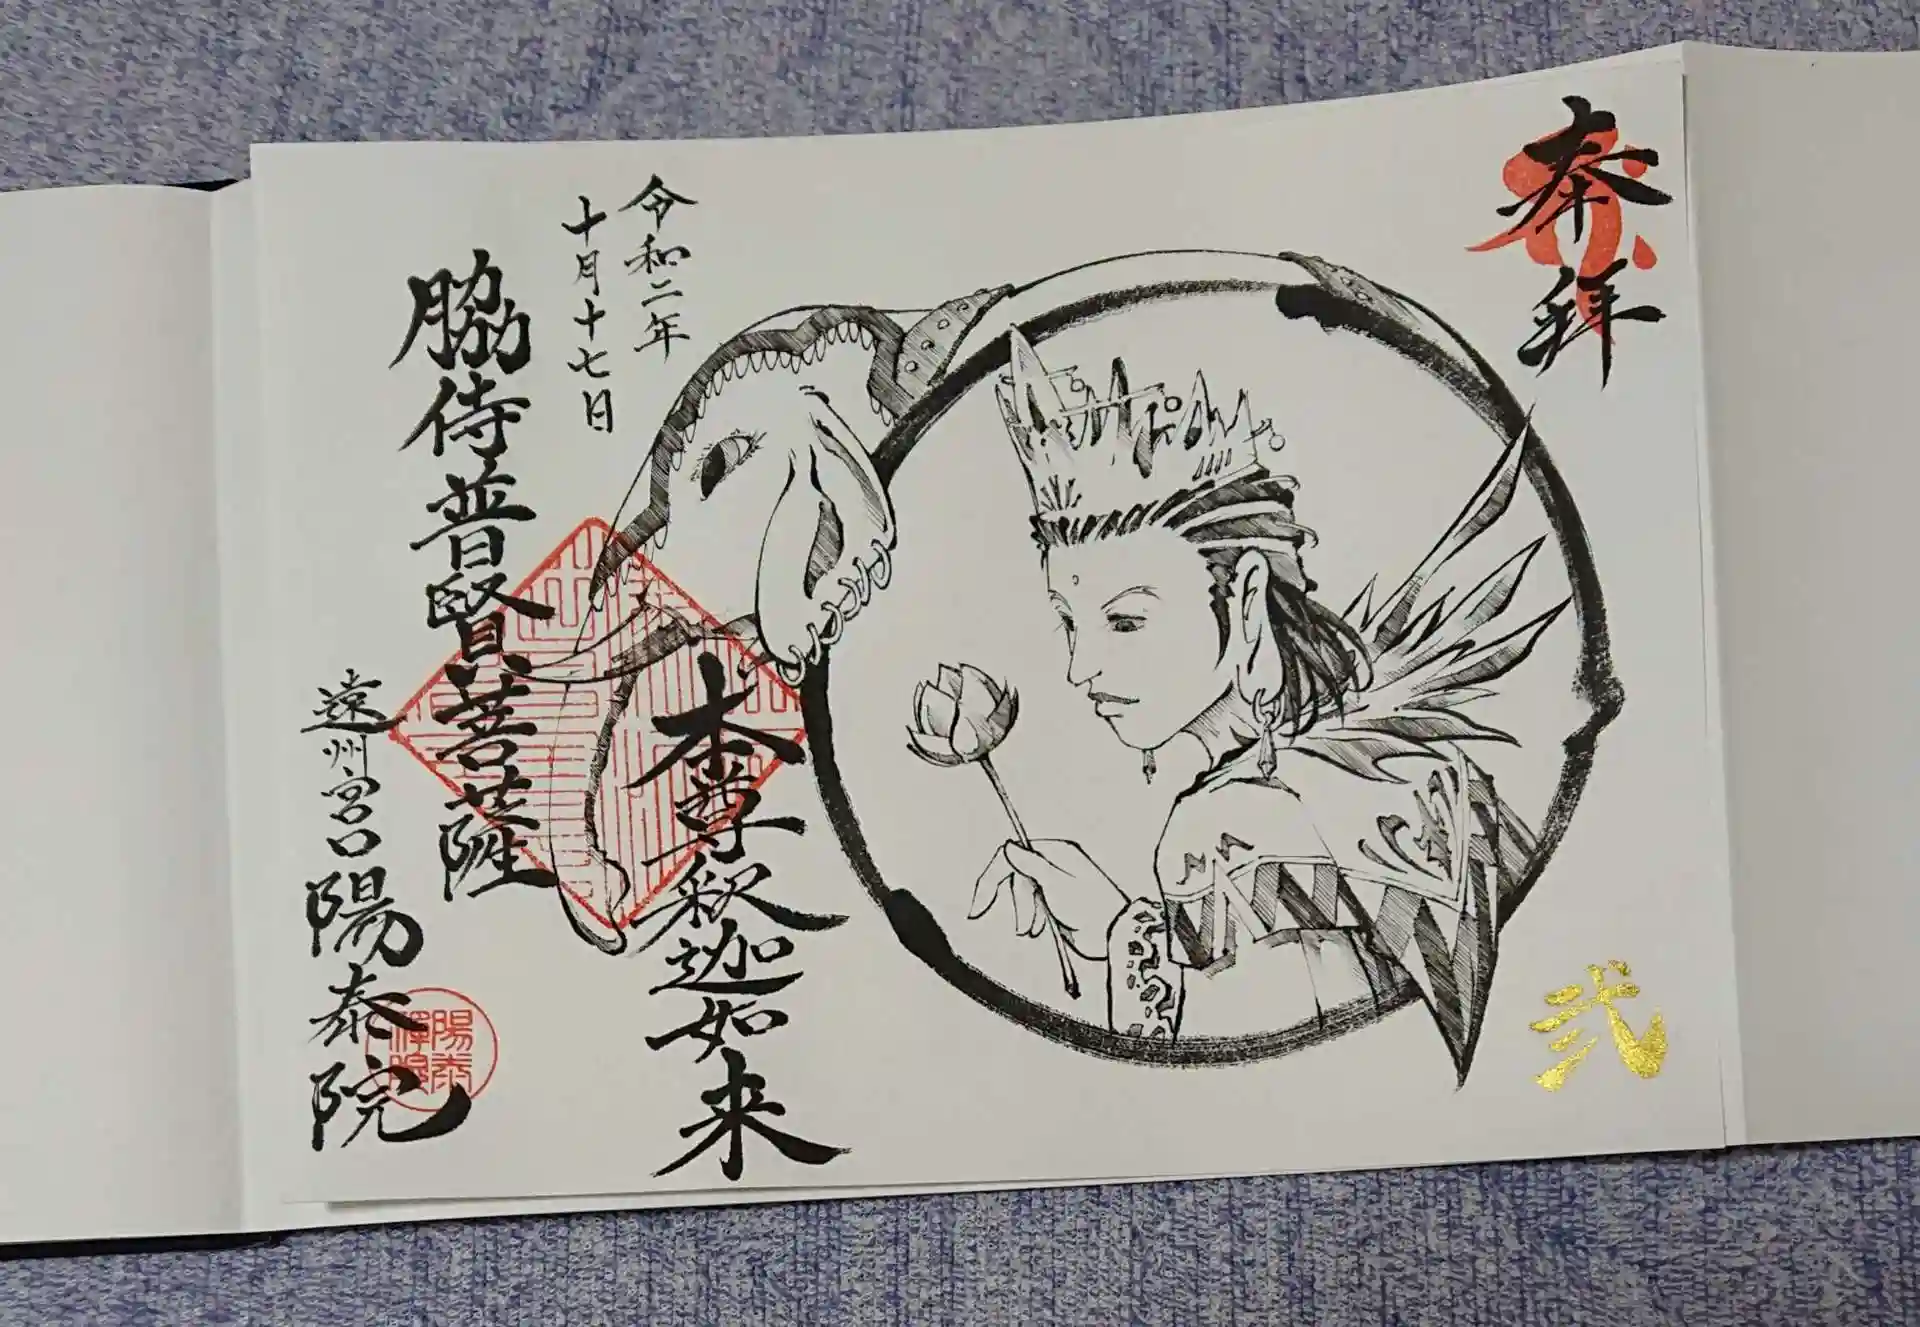 奉拝
弐
本尊釈迦如来
令和二年
十月十七日
脇侍普賢菩薩
遠州宮口陽泰院